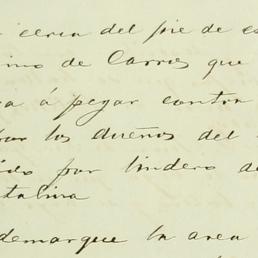 cerca del pie de es
ino de Carros que
a á pegar contra
por los dueños del
ido por lindero de
talina
demarque la area